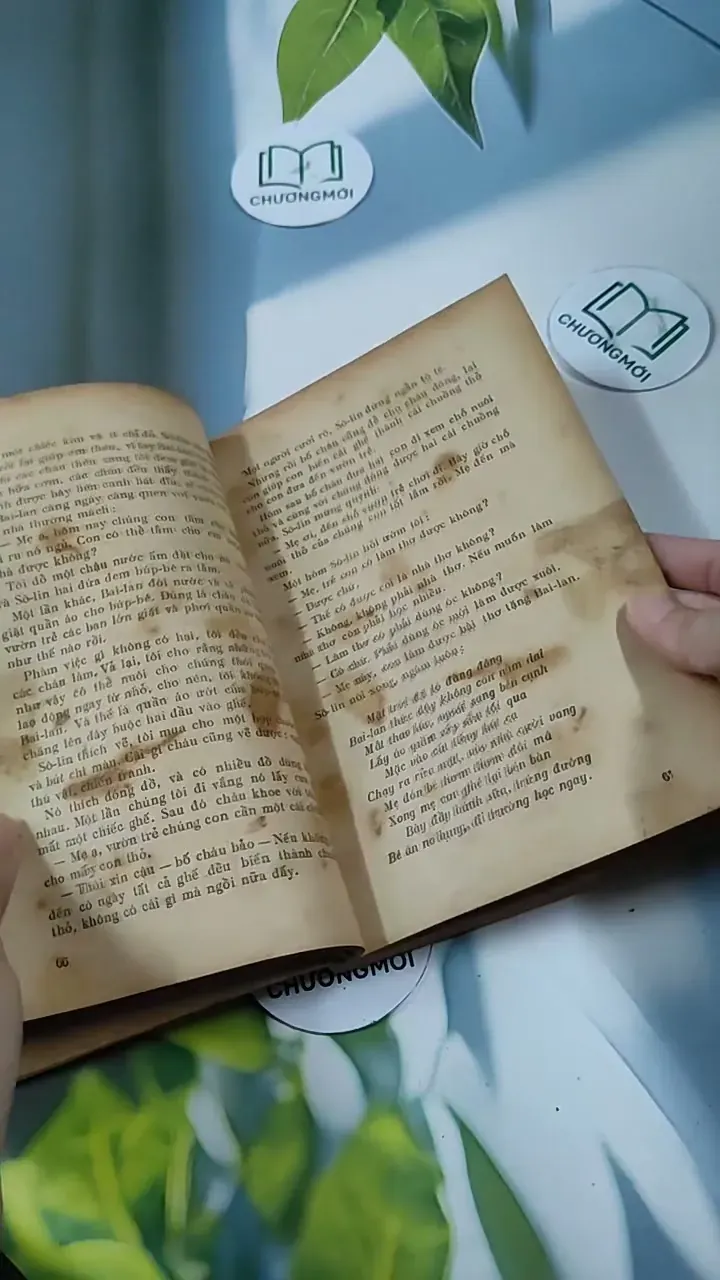 CHƯƠNGMỚI
CHƯƠNGMỚI
một chiếc kim và ít chỉ đỏ.
bữa cơm, các cháu đều thấy
được bày liền cạnh lát
Bai-lan càng ngày càng quen với
nhà thương mách:
— Mẹ ạ, hôm nay chúng con tắm cho
ru nó ngủ. Con có thể tắm cho em
được không?
Tôi đổ một chậu nước ấm đặt cho
và Sô-lin hai đứa đem búp-bê ra tắm.
Một lần khác, Bai-lan đòi nước và xà
giặt quần áo cho búp-bê. Đúng là cháu
vườn trẻ các bạn lớn giặt và phơi quần
như thế nào rồi.
Phàm việc gì không có hại, tôi đều cho
các cháu làm. Vả lại, tôi cho rằng những
như vậy có thể nuôi cho chúng thói quen
lao động ngay từ nhỏ, cho nên, tôi không
Bai-lan. Và thế là quần áo ướt của búp-bê
chăng lên dây buộc hai đầu vào ghế.
Sô-lin thích vẽ, tôi mua cho một hộp
và bút chì màu. Cái gì cháu cũng vẽ được:
thú vật, chiến tranh.
Nó thích đóng đồ, và có nhiều đồ dùng
nhau. Một lần chúng tôi đi vắng nó lấy cưa
mất một chiếc ghế. Sau đó cháu khoe với
— Mẹ ạ, vườn trẻ chúng con cần một cái
cho mấy con thỏ.
— Thôi xin cậu — bố cháu bảo — Nếu không
đến có ngày tất cả ghế đều biến thành
thỏ, không có cái gì mà ngồi nữa đấy.
66
Mọi người cười rộ, Sô-lin đứng ngẩn tò te.
Nhưng rồi bố cháu cũng để cho cháu đóng, lại
còn giúp con biến cái ghế thành cái chuồng thỏ
cho con đưa đến vườn trẻ.
Hôm sau bố cháu đưa hai con đi xem chỗ nuôi
thỏ và cùng với chúng đóng được hai cái chuồng
nữa. Sô-lin mừng quýnh:
— Mẹ ơi, đến chỗ vườn trẻ chơi đi. Bây giờ chỗ
nuôi thỏ của chúng con tốt lắm rồi. Mẹ đến mà
xem.
Một hôm Sô-lin hỏi ướm tôi:
— Mẹ, trẻ con có làm thơ được không?
— Được chứ.
— Thế có được coi là nhà thơ không?
— Không, không phải nhà thơ. Nếu muốn làm
nhà thơ còn phải học nhiều.
— Làm thơ có phải dùng óc không?
— Có chứ. Phải dùng óc mới làm được xuôi.
— Mẹ này, con làm được bài thơ tặng Bai-lan.
Sô-lin nói xong, ngâm luôn:
Mặt trời đã ló đằng đông
Bai-lan thức dậy không còn nằm dai
Mắt thao láo, ngoắt sang bên cạnh
Lấy áo quần xếp ghế tối qua
Mặc vào
Chạy ra rửa mặt, nói cười vang
Mẹ đón bé
Xong mẹ con ghé lại bên bàn
Bày đầy bánh sữa, trứng đường
Bé ăn no bụng, đi thường học ngay.
CHƯƠNGMỚI